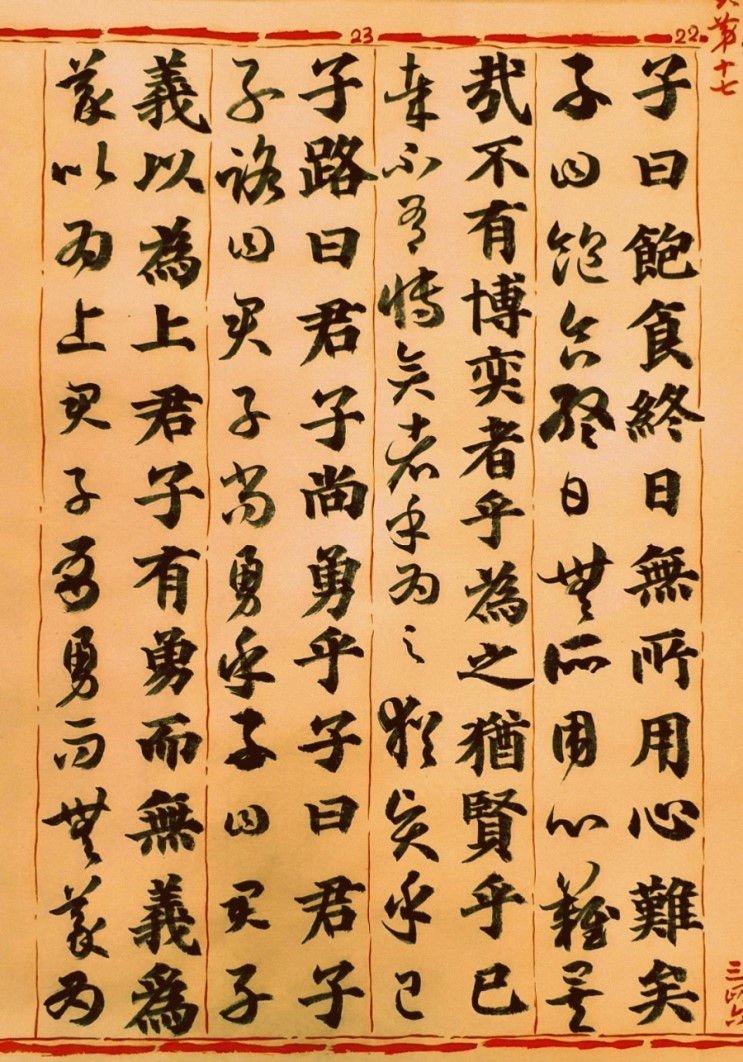 第十七
22.
子曰飽食終日無所用心難矣
子曰飽食終日無所用心難矣
哉不有博奕者乎為之猶賢乎已
哉不有博奕者乎為之猶賢乎已
23
子路曰君子尚勇乎子曰君子
子路曰君子尚勇乎子曰君子
義以為上君子有勇而無義為
義以為上君子有勇而無義為